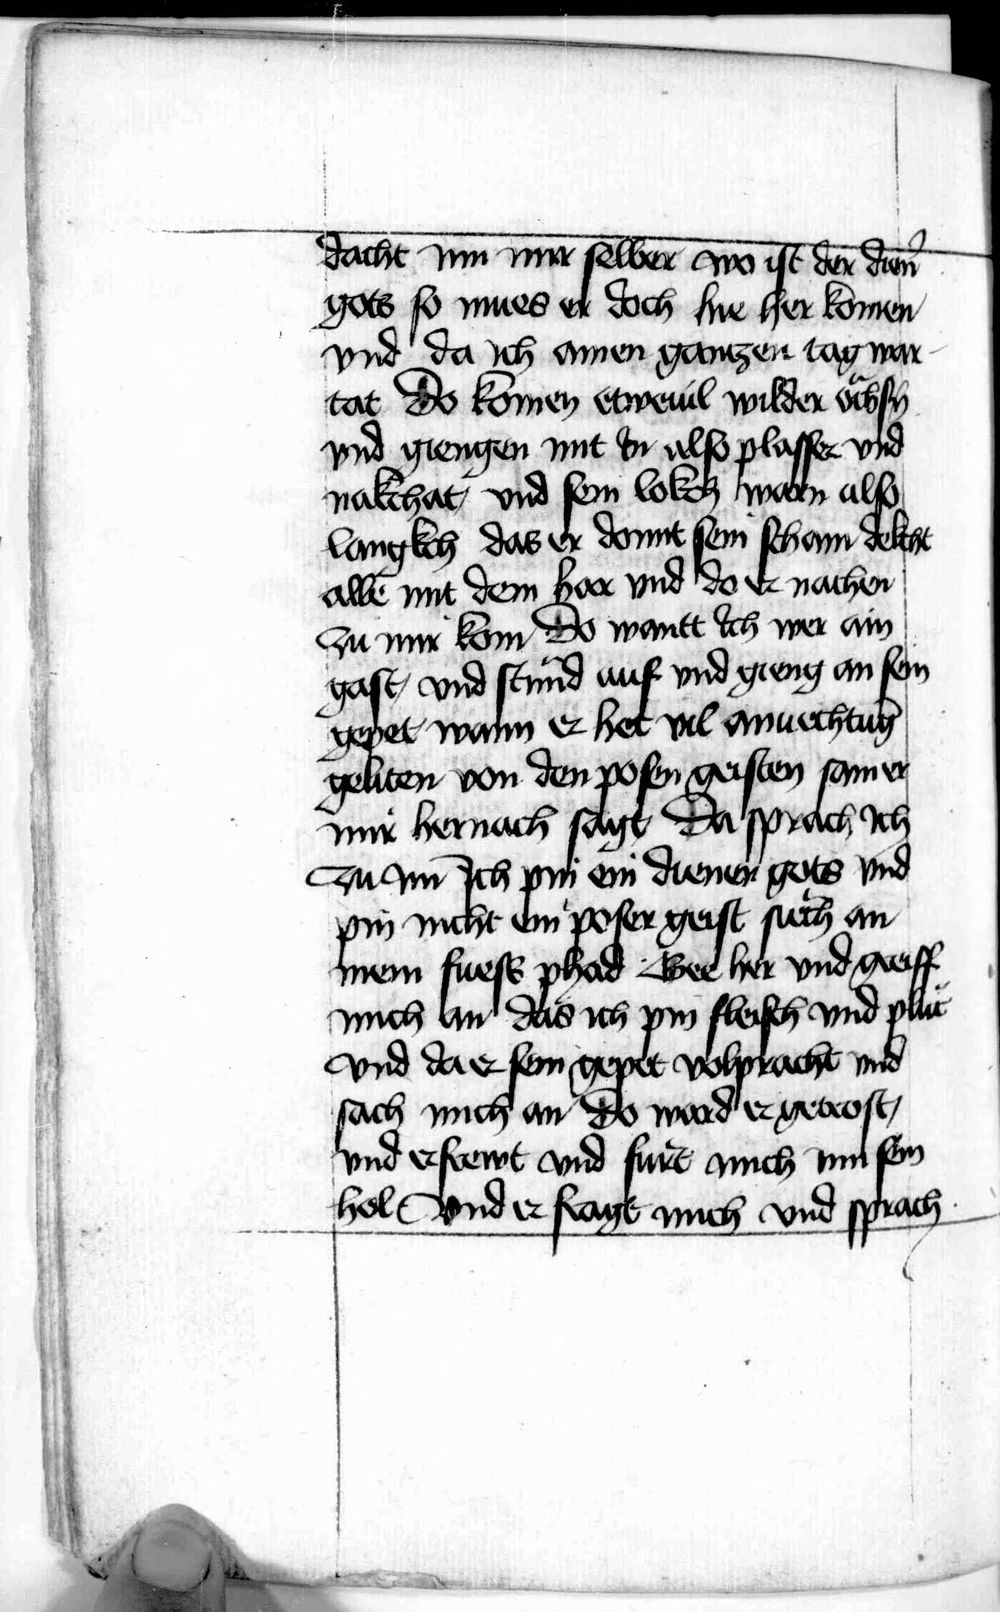 dacht inn mir selber wo ist der dien̉
gots so mues er doch hie her komen
vnd da ich ainen gantzen tag war-
tat Do komen etweuil wilder ochsn̄
vnd giengen mit In also plasser vnd
nakchat vnd sein lokch warn also
langkch das er domit sein scham dekcht
allē mit dem har vnd do er nachen
zu mir kom Do wantt Ich wer ain
gast vnd stůnd auf vnd gieng an sein
gepet wann er het vil anuechtūg
geliten von den posen geisten sam er
mir hernach sagt Da sprach Ich
zu im Ich pin ein diener gots vnd
pin nicht ein poser geist siech an
mein fuess phad Gee her vnd greiff
mich an das ich pin fleisch vnd plůt
vnd da er sein gepet volpracht vnd
sach mich an Do ward er getrost
vnd erfrewt vnd fůrt mich inn sein
hol Vnd er fragt mich vnd sprach